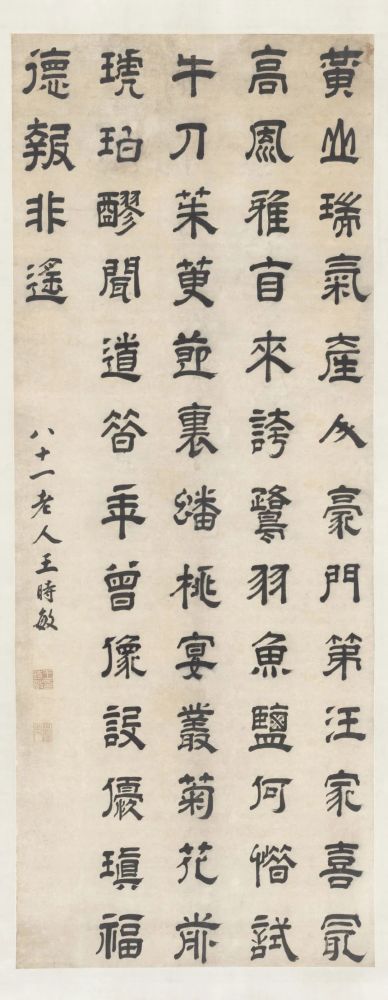 黃山瑞氣產人豪門第汪家喜最
高鳳雅首來誇鷺羽魚鹽何惜試
牛刀茱萸節裏蟠桃宴叢菊花前
琥珀醪聞道昔年曾像設優瑱福
德報非遙
八十一老人王時敏